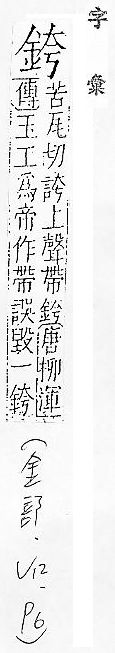 字彙
銙
苦瓦切誇上聲帶銙唐柳渾
傳玉工爲帝作帶誤毀一銙
(金部.V12-P6)